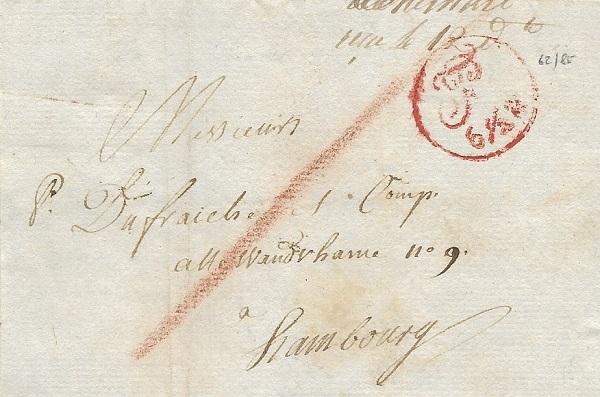 reçu le 12 d
62/85
Messieurs
P. Dufraiche et Comp.
alte Wandrhame no 9.
a
hambourg